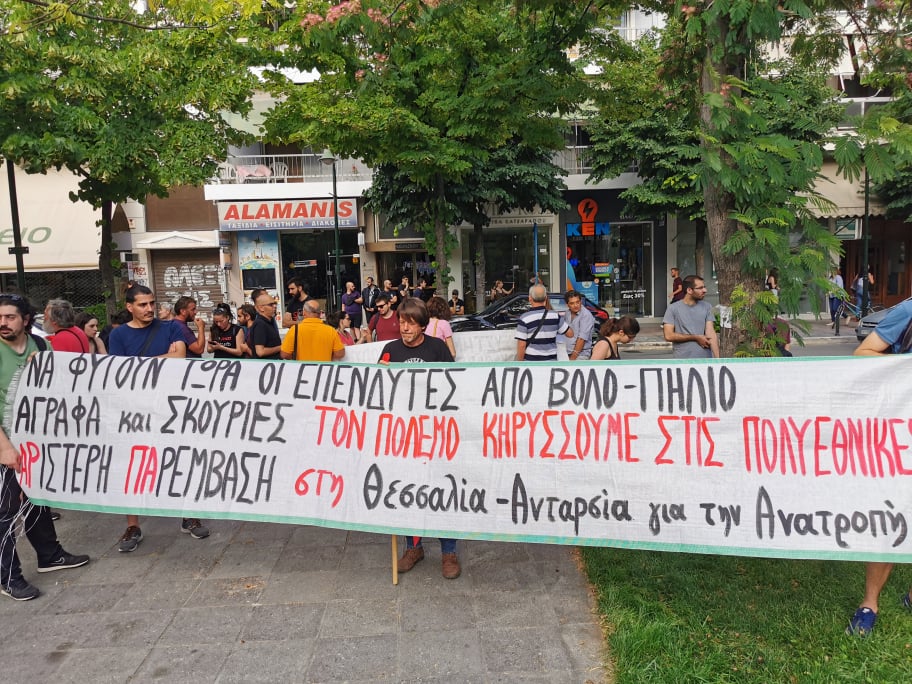 ALAMANIS
ΤΑΞΙΔΙΑ ΕΙΣΙΤΗΡΙΑ ΔΙΑΚΟΠΕΣ
KEN
Έως 30%
ΝΑ ΦΥΓΟΥΝ ΤΩΡΑ ΟΙ ΕΠΕΝΔΥΤΕΣ ΑΠΟ ΒΟΛΟ-ΠΗΛΙΟ
ΑΓΡΑΦΑ και ΣΚΟΥΡΙΕΣ ΤΟΝ ΠΟΛΕΜΟ ΚΗΡΥΣΣΟΥΜΕ ΣΤΙΣ ΠΟΛΥΕΘΝΙΚΕΣ
ΑΡΙΣΤΕΡΗ ΠΑΡΕΜΒΑΣΗ στη Θεσσαλία-Ανταρσία για την Ανατροπή